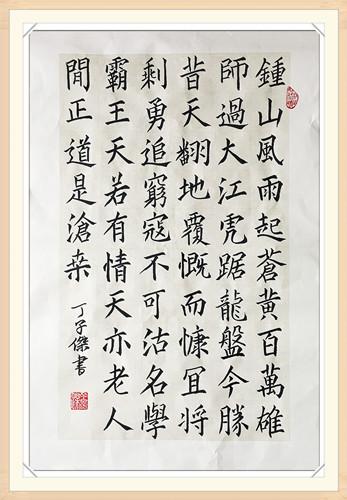 鍾山風雨起蒼黃百萬雄
師過大江虎踞龍盤今勝
昔天翻地覆慨而慷冝將
剩勇追窮寇不可沽名學
霸王天若有情天亦老人
閒正道是滄桒
丁子傑書